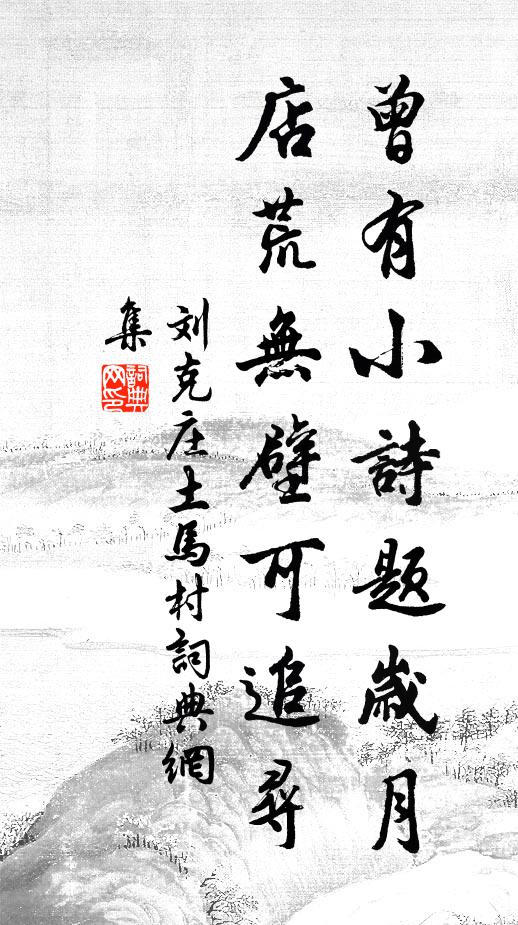 曾有小詩題歲月
店荒無壁可追尋
刘克庄土馬村詞典網
集
詞典網印